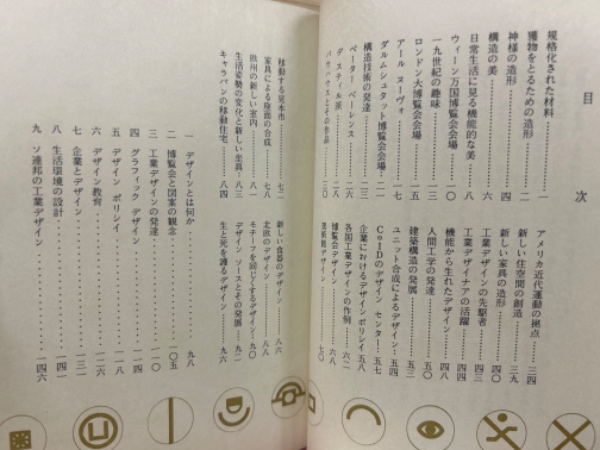 目次
規格化された材料……一
獲物をとるための造形……二
神様の造形……四
構造の美……六
日常生活に見る機能的な美……八
ウィーン万国博覧会会場……一〇
一九世紀の趣味……一三
ロンドン大博覧会会場……一五
アール ヌーヴォ……一七
ダルムシュタット博覧会会場……二一
構造技術の発達……二三
ペーター ベーレンス……二六
デ スティル派
バウハウスとその作品……三〇
アメリカ近代運動の拠点……三四
新しい住空間の創造……三九
新しい家具の造形……四〇
工業デザインの先駆者……四三
工業デザイナアの活躍……四四
機能から生れたデザイン……四八
人間工学の発達……五〇
建築構造の発展……五三
ユニット合成によるデザイン……五四
CoIDのデザイン センター……五七
企業におけるデザイン ポリシイ 五八
各国工業デザインの作例……六二
博覧会デザイン……六八
デザイン……七〇
移動する見本市……七二
家具による座面の合成……七八
欧州の新しい室内……八一
生活姿勢の変化と新しい坐具……八三
キャラバンの移動住宅……八四
新しい食器のデザイン……八六
北欧のデザイン……八八
モチーフを同じくするデザイン……九〇
デザイン ソースとその発展……九二
生と死を護るデザイン……九六
一 デザインとは何か……九八
二 博覧会と図案の観念……一〇五
三 工業デザインの発達……一一一
四 グラフィック デザイン……一一四
五 デザイン ポリシイ……一一八
六 デザイン教育……一二六
七 企業とデザイン……一三一
八 生活環境の設計……一四一
九 ソ連邦の工業デザイン……一四六